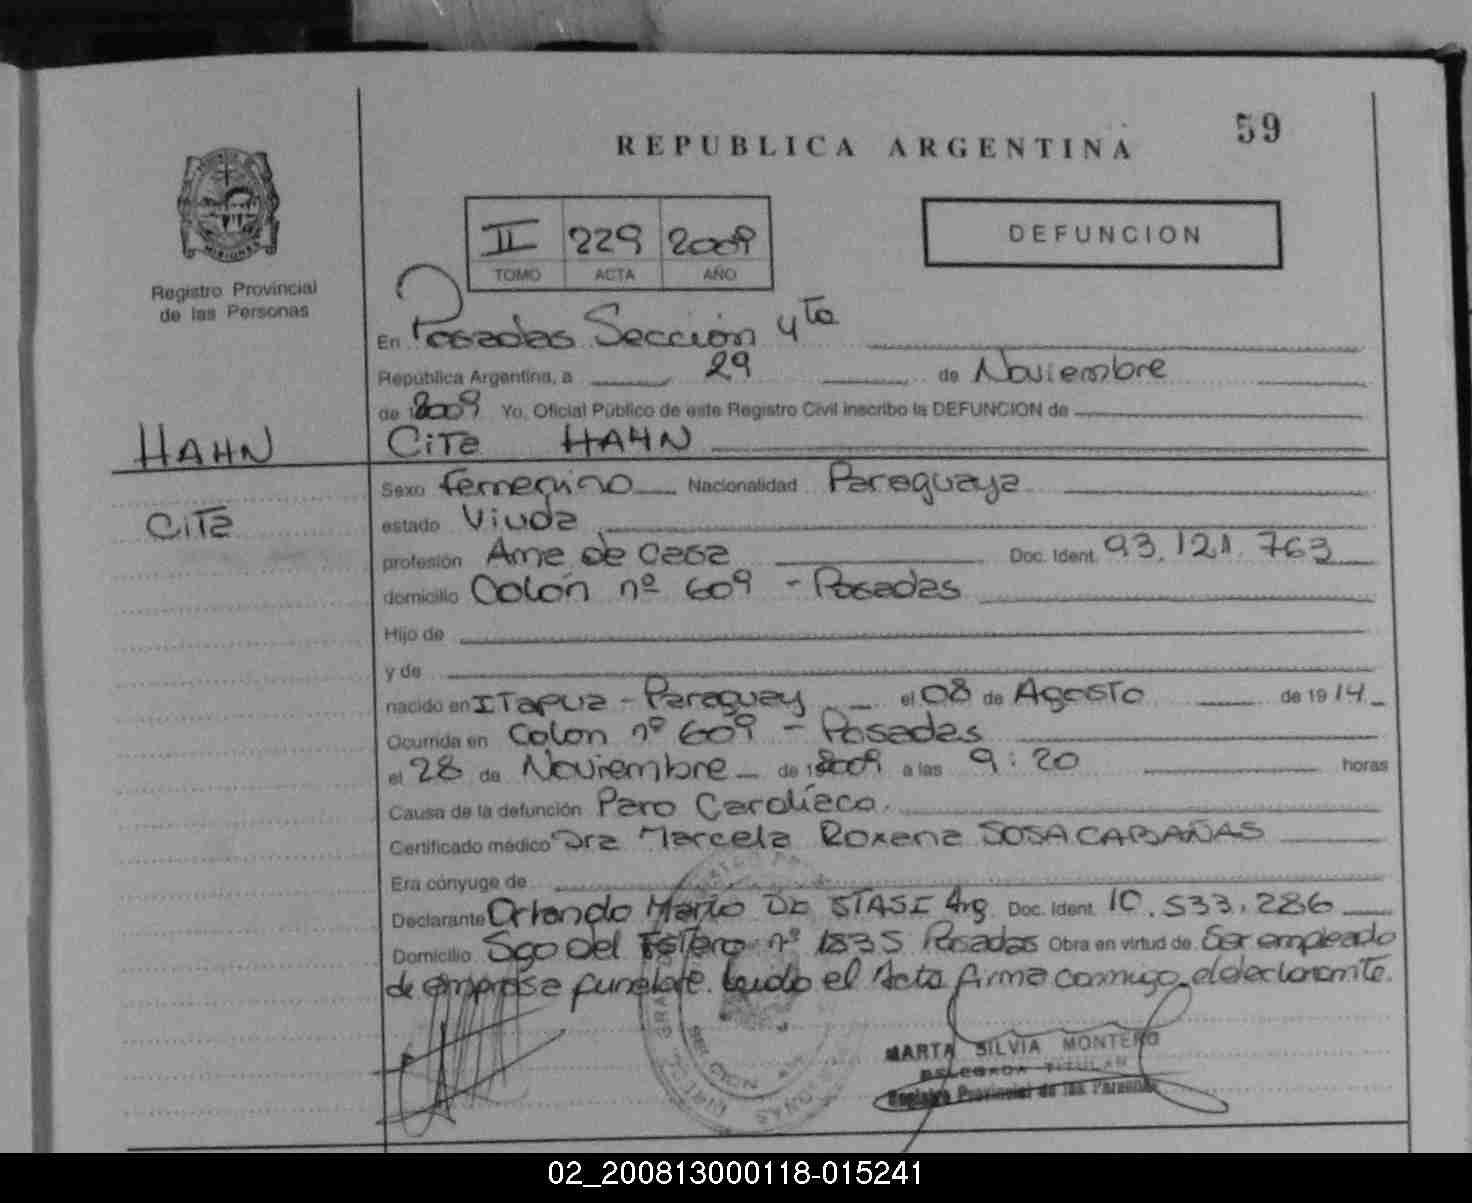 59
REPUBLICA ARGENTINA
II 229 2009
TOMO ACTA AÑO
DEFUNCION
MISIONES
Registro Provincial
de las Personas
En Posadas Sección 4ta
República Argentina, a 29 de Noviembre
de 2009 Yo, Oficial Público de este Registro Civil inscribo la DEFUNCION de
HAHN
Cita HAHN
Sexo femenino Nacionalidad Paraguaya
Cita
estado Viuda
profesión Ama de casa Doc. Ident. 93.121.763
domicilio Colón nº 609 - Posadas
Hijo de
y de
nacido en Itapua - Paraguay el 08 de Agosto de 1914
Ocurrida en Colon nº 609 - Posadas
el 28 de Noviembre de 2009 a las 9:20 horas
Causa de la defunción Paro Cardíaco.
Certificado médico Dra Marcela Roxana SOSA CABAÑAS
Era cónyuge de
Declarante Orlando Mario DE STASI Arg. Doc. Ident. 10.533.286
Domicilio Sgo Del Estero nº 1835 Posadas Obra en virtud de Ser empleado
de empresa funebre. Leida el Acta firma conmigo el declarante.
MARTA SILVIA MONTERO
DELEGADA TITULAR
Registro Provincial de las Personas
02_200813000118-015241